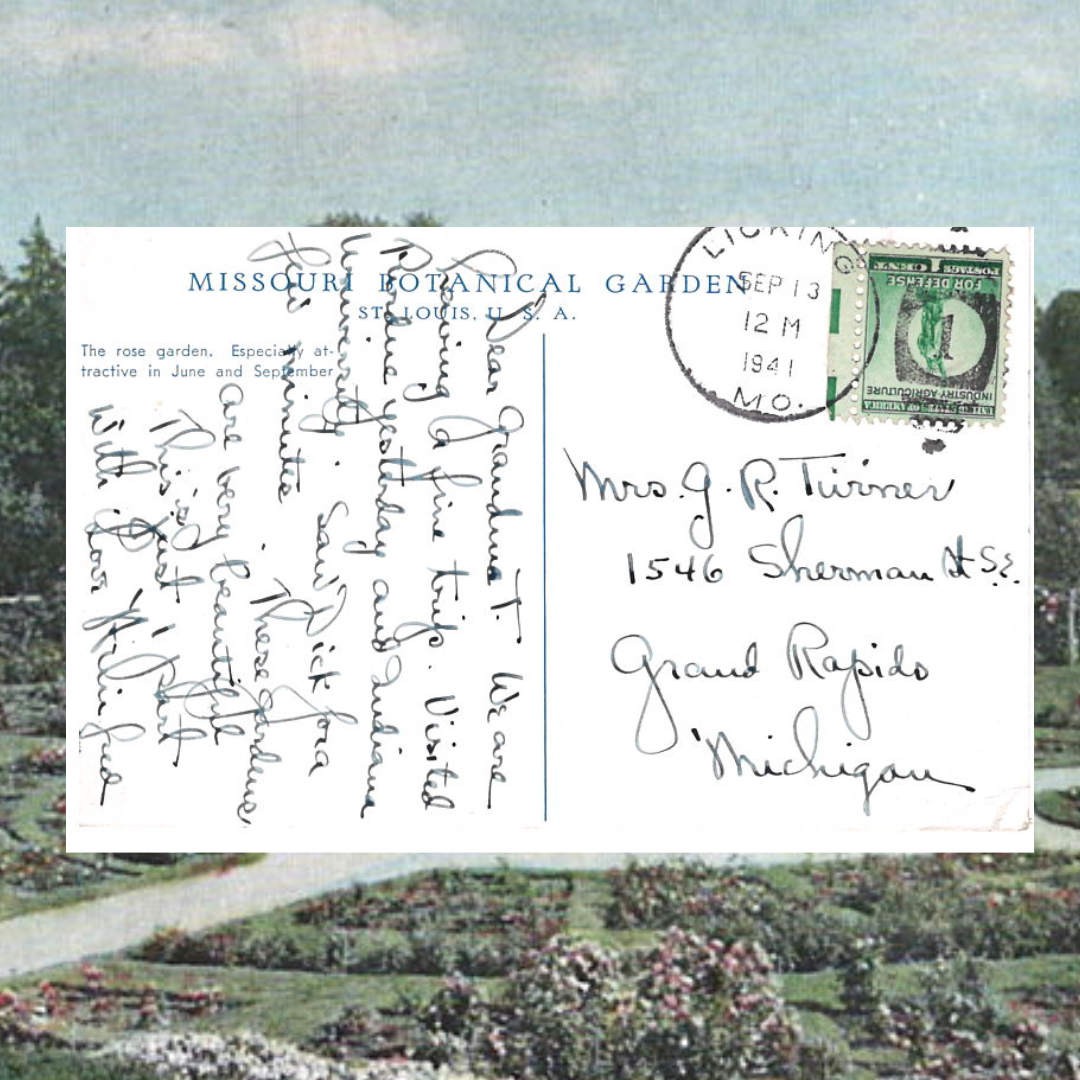 MISSOURI BOTANICAL GARDEN
ST. LOUIS, U. S. A.
The rose garden. Especially at-
tractive in June and September
Dear Grandma T. We are
having a fine trip. Visited
Purdue yesterday and Indiana
University. Saw Dick for a
few minutes. These gardens
are very beautiful
This is just 1 part
With love
LICKING
SEP 13
12 M
1941
MO.
UNITED STATES OF AMERICA
INDUSTRY·AGRICULTURE
1
FOR DEFENSE
POSTAGE 1 CENT
Mrs. G. R. Turner
1546 Sherman St S.E.
Grand Rapids
Michigan